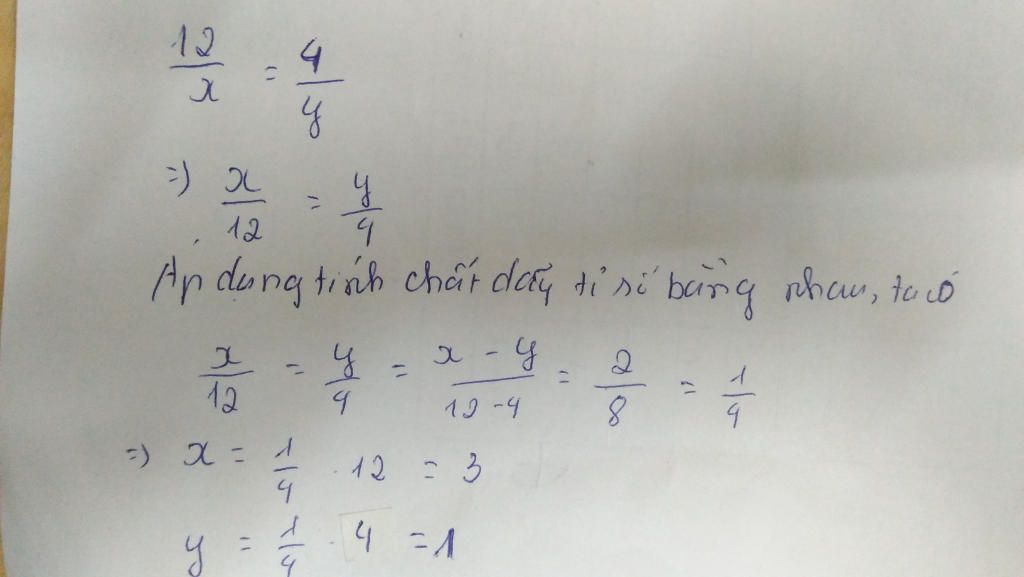 12/x = 4/y
=) x/12 = y/4
Áp dụng tính chất dãy tỉ số bằng nhau, ta có
x/12 = y/4 = x - y/12 - 4 = 2/8 = 1/4
=) x = 1/4 . 12 = 3
y = 1/4 . 4 = 1